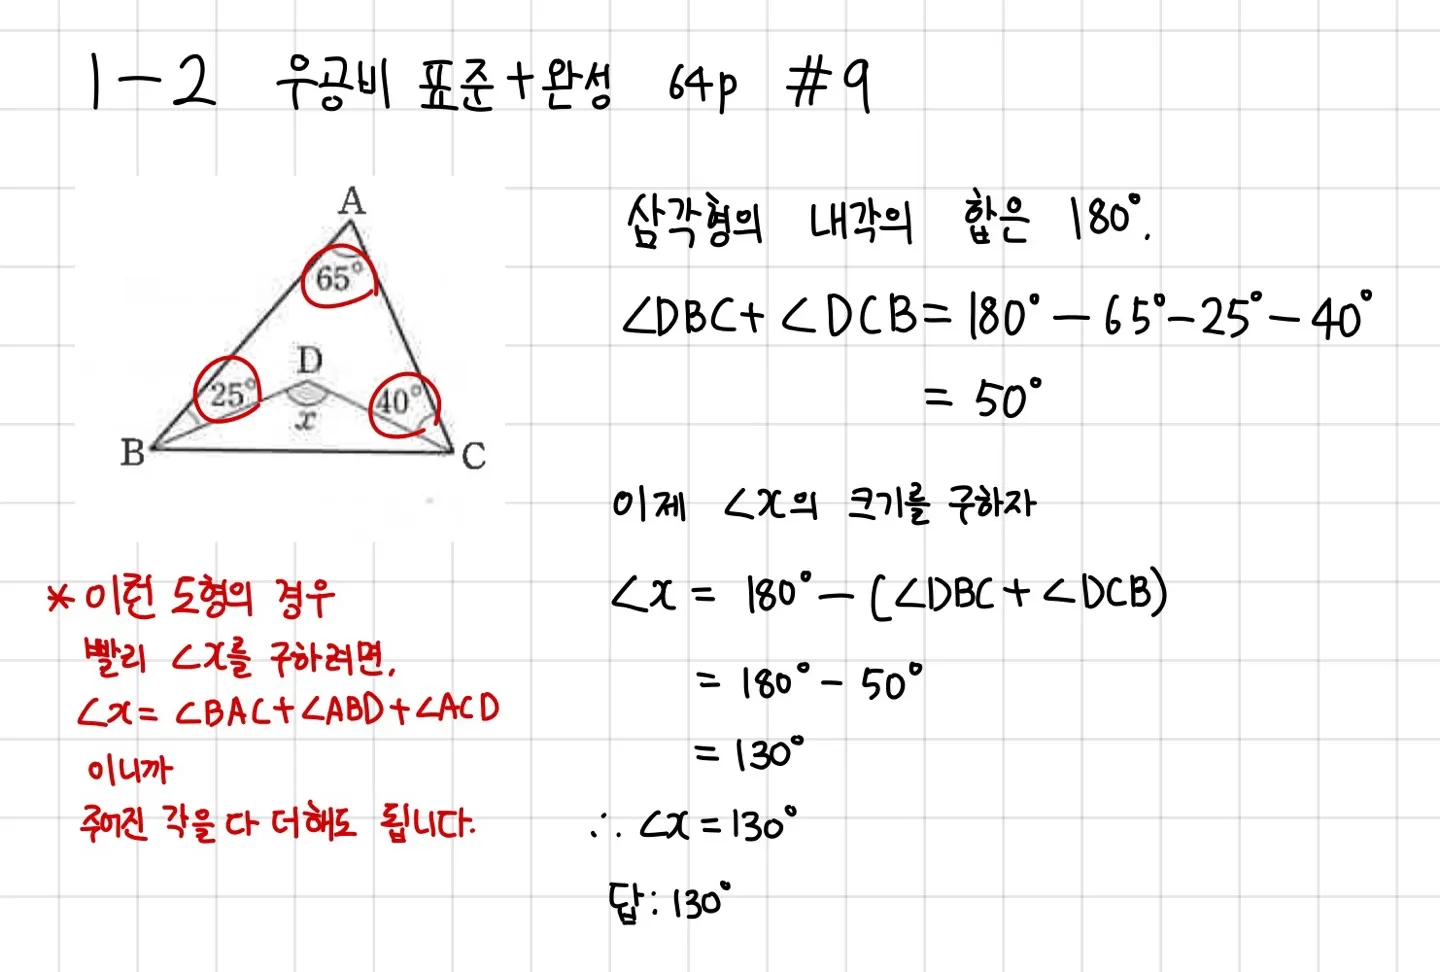 1-2 우공비 표준+완성 64p #9
A
65°
D
25°
40°
x
B
C
삼각형의 내각의 합은 180°.
∠DBC+∠DCB=180°-65°-25°-40°
=50°
이제 ∠x의 크기를 구하자
∠x = 180°-(∠DBC+∠DCB)
= 180°-50°
=130°
∴ ∠x=130°
답:130°
* 이런 도형의 경우
빨리 ∠x를 구하려면,
∠x= ∠BAC+∠ABD+∠ACD
이니까
주어진 각을 다 더해도 됩니다.